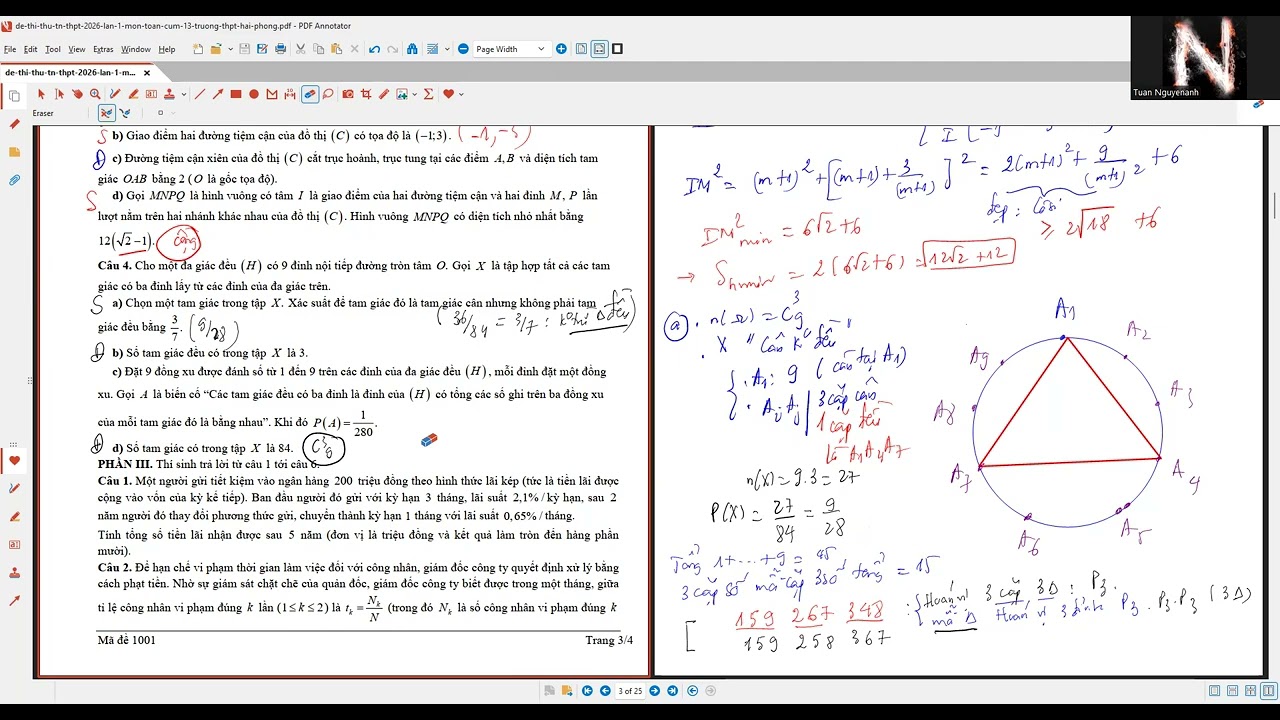 de-thi-thu-tn-thpt-2026-lan-1-mon-toan-cum-13-truong-thpt-hai-phong.pdf - PDF Annotator
File Edit Tool View Extras Window Help
Page Width
de-thi-thu-tn-thpt-2026-lan-1-m...
Eraser
Tuan Nguyenanh
S b) Giao điểm hai đường tiệm cận của đồ thị (C) có tọa độ là (−1;3). (-1,-3)
Đ c) Đường tiệm cận xiên của đồ thị (C) cắt trục hoành, trục tung tại các điểm A,B và diện tích tam
giác OAB bằng 2 (O là gốc tọa độ).
S d) Gọi MNPQ là hình vuông có tâm I là giao điểm của hai đường tiệm cận và hai đỉnh M, P lần
lượt nằm trên hai nhánh khác nhau của đồ thị (C). Hình vuông MNPQ có diện tích nhỏ nhất bằng
12(√2−1). cộng
Câu 4. Cho một đa giác đều (H) có 9 đỉnh nội tiếp đường tròn tâm O. Gọi X là tập hợp tất cả các tam
giác có ba đỉnh lấy từ các đỉnh của đa giác trên.
S a) Chọn một tam giác trong tập X. Xác suất để tam giác đó là tam giác cân nhưng không phải tam
giác đều bằng 3/7. (9/28) (36/84 = 3/7 : Δ đều)
Đ b) Số tam giác đều có trong tập X là 3.
c) Đặt 9 đồng xu được đánh số từ 1 đến 9 trên các đỉnh của đa giác đều (H), mỗi đỉnh đặt một đồng
xu. Gọi A là biến cố “Các tam giác đều có ba đỉnh là đỉnh của (H) có tổng các số ghi trên ba đồng
xu của mỗi tam giác đó là bằng nhau”. Khi đó P(A) = 1/280.
Đ d) Số tam giác có trong tập X là 84.
PHẦN III. Thí sinh trả lời từ câu 1 tới câu 6.
Câu 1. Một người gửi tiết kiệm vào ngân hàng 200 triệu đồng theo hình thức lãi kép (tức là tiền lãi được
cộng vào vốn của kỳ kế tiếp). Ban đầu người đó gửi với kỳ hạn 3 tháng, lãi suất 2,1%/kỳ hạn, sau 2
năm người đó thay đổi phương thức gửi, chuyển thành kỳ hạn 1 tháng với lãi suất 0,65%/tháng.
Tính tổng số tiền lãi nhận được sau 5 năm (đơn vị là triệu đồng và kết quả làm tròn đến hàng phần
mười).
Câu 2. Để hạn chế vi phạm thời gian làm việc đối với công nhân, giám đốc công ty quyết định xử lý bằng
cách phạt tiền. Nhờ sự giám sát chặt chẽ của quản đốc, giám đốc công ty biết được trong một tháng, giữa
tỉ lệ công nhân vi phạm đúng k lần (1≤k≤2) là t_k = N_k/N (trong đó N_k là số công nhân vi phạm đúng k
Mã đề 1001 Trang 3/4
IM² = (m+1)² + [(m+1) + 3/(m+1)]² = 2(m+1)² + 9/(m+1)² + 6
≥ 2√18 + 6
IM²min = 6√2+6
→ S hv min = 2(6√2+6) = 12√2+12
a . n(Ω) = C³₉
. X "Cân k° đều"
. A₁: 9 (cân tại A₁)
3 cặp cân
1 cặp đều
là A₁A₄A₇
n(X) = 9.3 = 27
P(X) = 27/84 = 9/28
A₁
A₂
A₃
A₄
A₅
A₆
A₇
A₈
A₉
Tổng 1+...+9 = 45
3 cặp số mỗi cặp 3 số tổng = 15
159 267 348 : Hoán vị 3 cặp 3Δ : P₃.
mỗi Δ Hoán vị 3 đỉnh P₃.P₃.P₃ (3Δ)
159 258 367
3 of 25